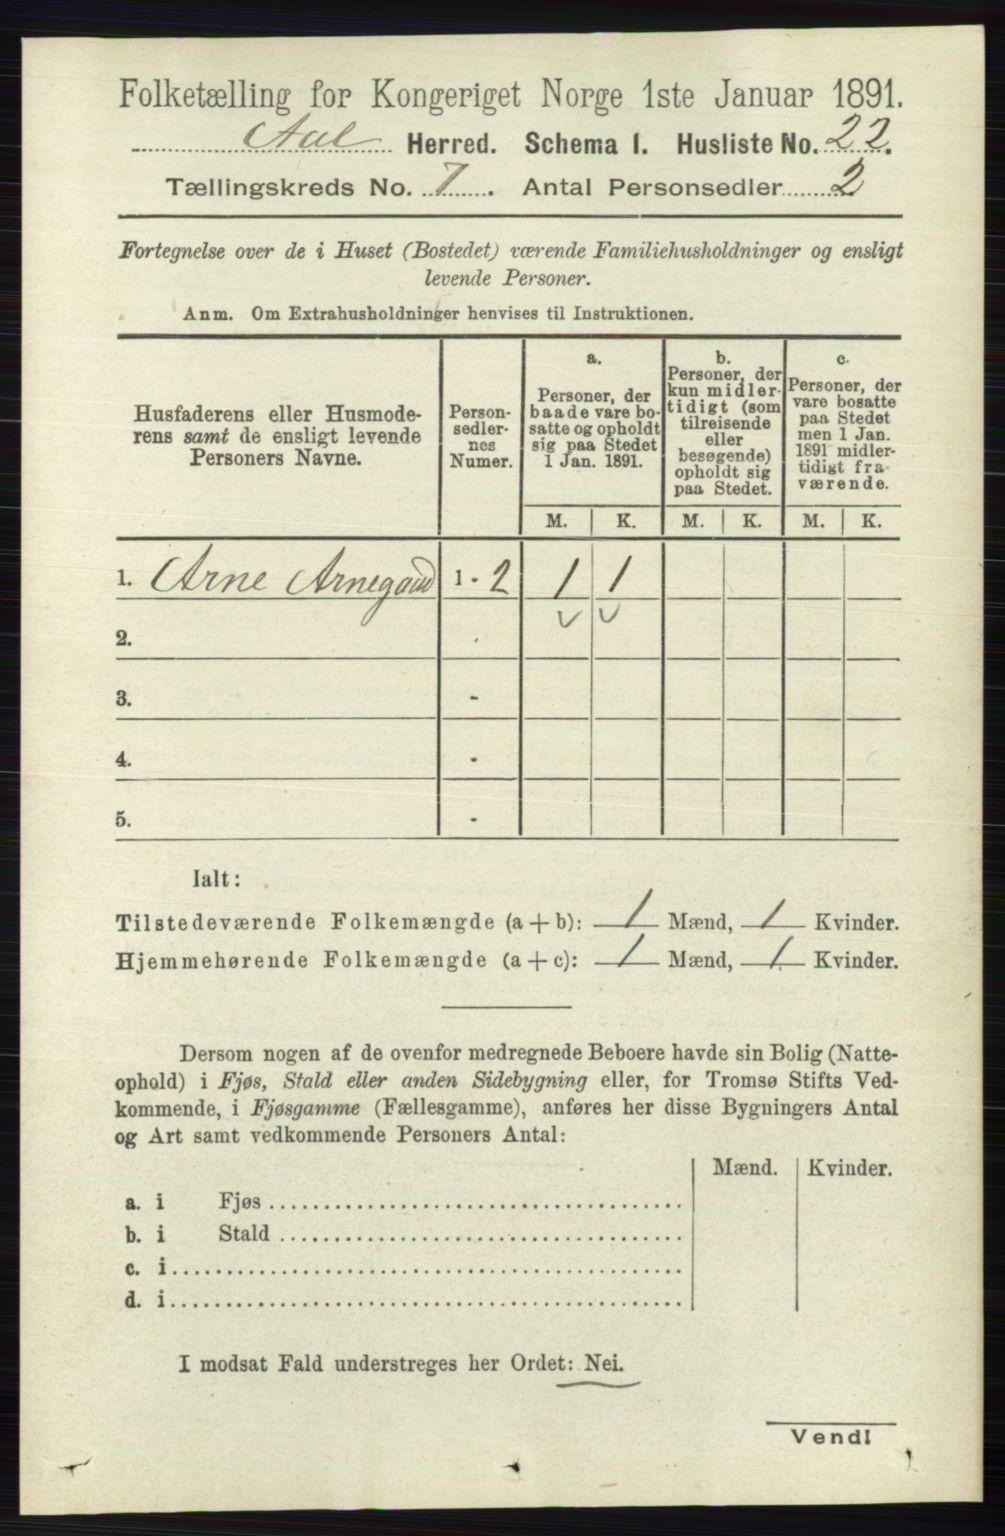 Folketælling for Kongeriget Norge 1ste Januar 1891.
Aal Herred. Schema I. Husliste No. 22.
Tællingskreds No. 7. Antal Personsedler 2
Fortegnelse over de i Huset (Bostedet) værende Familiehusholdninger og ensligt
levende Personer.
Anm. Om Extrahusholdninger henvises til Instruktionen.
Husfaderens eller Husmode-
rens samt de ensligt levende
Personers Navne.
Person-
sedler-
nes
Numer.
a.
Personer, der
baade vare bo-
satte og opholdt
sig paa Stedet
1 Jan. 1891.
b.
Personer, der
kun midler-
tidigt (som
tilreisende
eller
besøgende)
opholdt sig
paa Stedet.
c.
Personer, der
vare bosatte
paa Stedet
men 1 Jan.
1891 midler-
tidigt fra-
værende.
M. K. M. K. M. K.
1. Arne Arnegaard 1 - 2 1 1
2.
3. -
4. -
5. -
Ialt:
Tilstedeværende Folkemængde (a + b): 1 Mænd, 1 Kvinder.
Hjemmehørende Folkemængde (a + c): 1 Mænd, 1 Kvinder.
Dersom nogen af de ovenfor medregnede Beboere havde sin Bolig (Natte-
ophold) i Fjøs, Stald eller anden Sidebygning eller, for Tromsø Stifts Ved-
kommende, i Fjøsgamme (Fællesgamme), anføres her disse Bygningers Antal
og Art samt vedkommende Personers Antal:
Mænd. Kvinder.
a. i Fjøs
b. i Stald
c. i
d. i
I modsat Fald understreges her Ordet: Nei.
Vend!